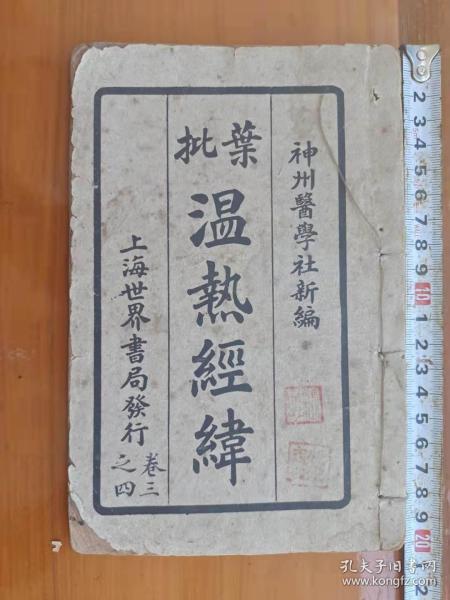 神州醫學社新編
葉批
温熱經緯
上海世界書局發行
卷三之四
2 3 4 5 6 7 8 9 10 1 2 3 4 5 6 7 8 9 20 1 2
孔夫子旧书网
www.kongfz.com